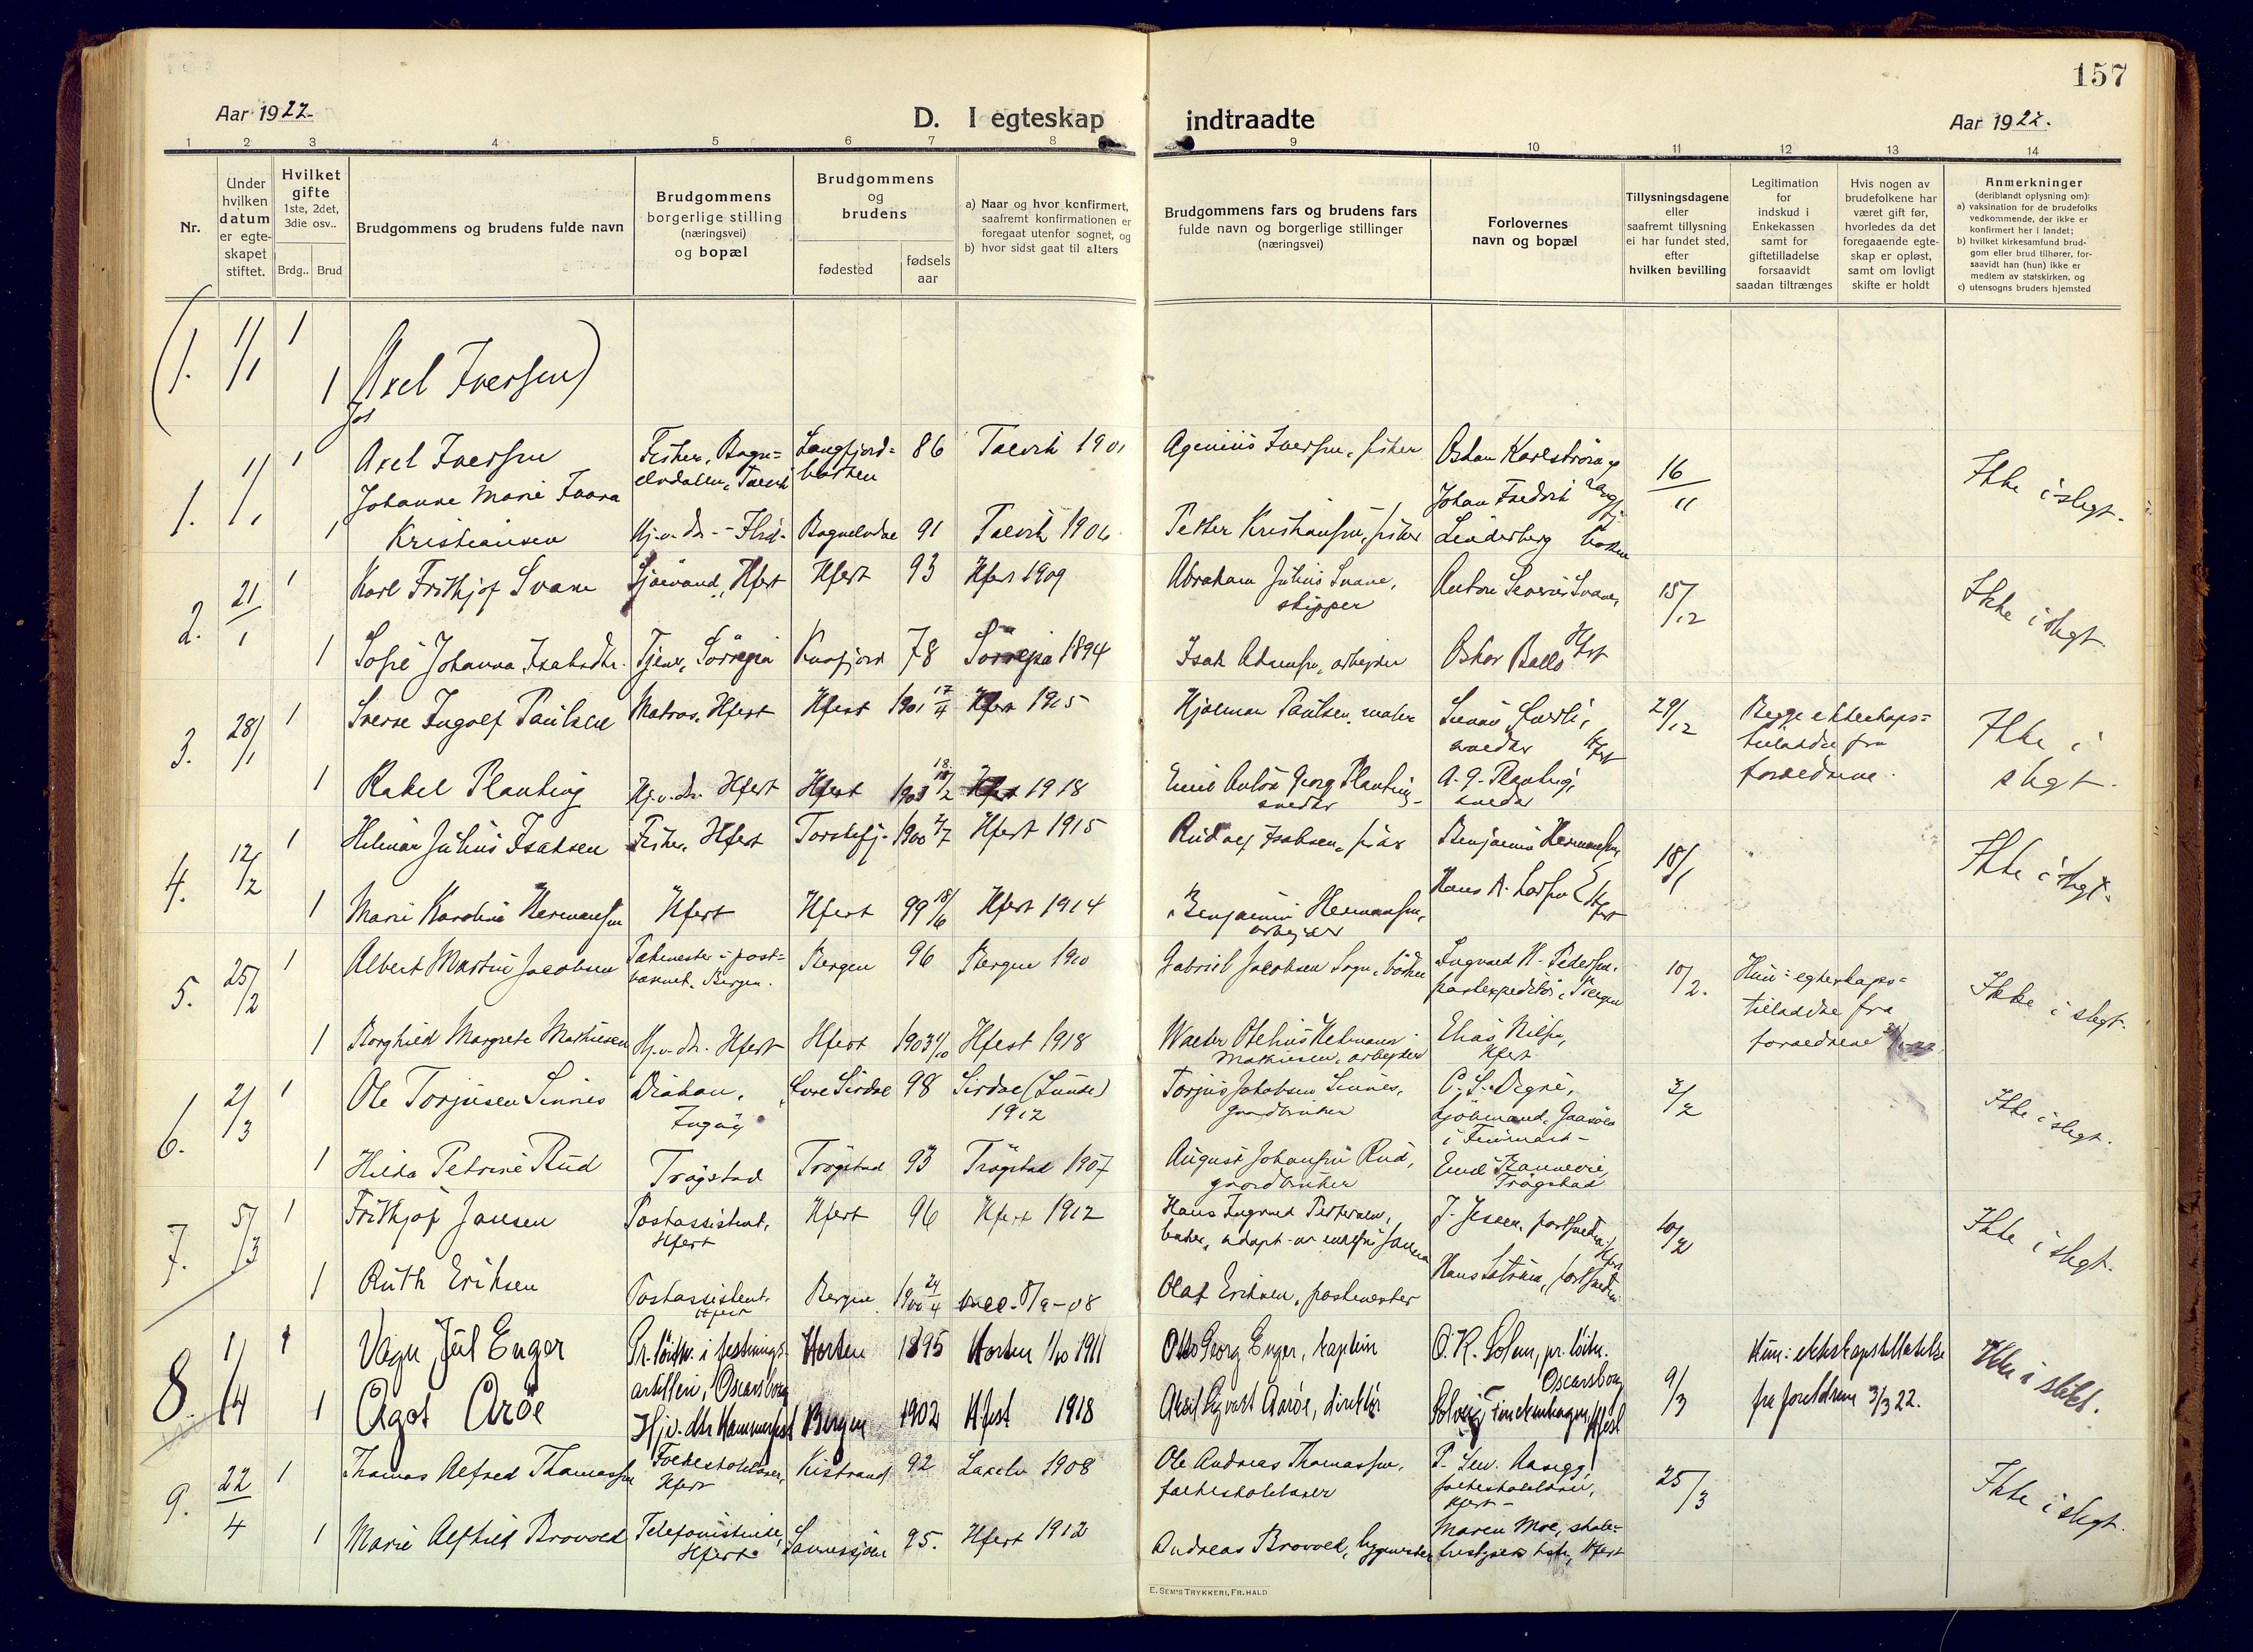 157
Aar 1922.
D. I egteskap indtraadte
Aar 1922.
1 2 3 4 5 6 7 8 9 10 11 12 13 14
Nr.
Under
hvilken
datum
er egte-
skapet
stiftet.
Hvilket
gifte
1ste, 2det,
3die osv..
Brdg.. Brud
Brudgommens og brudens fulde navn
Brudgommens
borgerlige stilling
(næringsvei)
og bopæl
Brudgommens
og
brudens
fødested
fødsels
aar
a) Naar og hvor konfirmert,
saafremt konfirmationen er
foregaat utenfor sognet, og
b) hvor sidst gaat til alters
Brudgommens fars og brudens fars
fulde navn og borgerlige stillinger
(næringsvei)
Forlovernes
navn og bopæl
Tillysningsdagene
eller
saafremt tillysning
ei har fundet sted,
efter
hvilken bevilling
Legitimation
for
indskud i
Enkekassen
samt for
giftetilladelse
forsaavidt
saadan tiltrænges
Hvis nogen av
brudefolkene har
været gift før,
hvorledes da det
foregaaende egte-
skap er opløst,
samt om lovligt
skifte er holdt
Anmerkninger
(deriblandt oplysning om):
a) vaksination for de brudefolks
vedkommende, der ikke er
konfirmert her i landet;
b) hvilket kirkesamfund brud-
gom eller brud tilhører, for-
saavidt han (hun) ikke er
medlem av statskirken, og
c) utensogns bruders hjemsted
(1. 1/1 1 1 Axel Iversen)
1. 1/1 1 Axel Iversen Fisker, Bogn-
elvdalen, Talvik Langfjord-
botten 86 Talvik 1901 Iversen, fisker Oskar Karlstrøm 16/11 Ikke i slegt.
1 Johanne Marie
Kristiansen Hj.v. dtr. Bognelvdal 91 Talvik 1906 Petter Kristiansen, fisker Johan Fredrik
Linderberg
2. 21/1 1 Karl Frithjof Svane Sjømand, Hfest Hfest 93 Hfest 1909 Abraham Julius Svane,
skipper Anton Severin Svane, 15/12 Ikke i slegt.
1 Sofie Johanna Isaksdtr. Tjener, Sørreisa 78 Sørreisa 1894 Isak arbeider Oskar Hfest
3. 28/1 1 Sverre Ingolf Paulsen Matros, Hfest Hfest 1901 17/4 Hfest 1915 Hjalmar Paulsen, maler snedker Hfest 29/12 Begge ekteskaps-
tilladelse fra
foreldrene. Ikke i
slegt.
1 Rakel Planting Hj.v. dtr. Hfest Hfest 1903 Hfest 1918 Emil Anton Georg Planting,
snedker A. G. Planting,
snedker
4. 12/2 1 Hilmar Julius Isaksen Fisker, Hfest 1900 Hfest 1915 Rudolf Isaksen, Benjamin Hermansen 18/1 Ikke i slegt.
1 Marie Karoline Hermansen Hfest Hfest 99 18/6 Hfest 1914 Benjamin Hermansen,
arbeider Hans A. Larsen Hfest
5. 25/2 1 Albert Martin Jacobsen Pakmester i post-
væsenet. Bergen. Bergen 96 Bergen 1910 Gabriel Jacobsen Ingvald H. Pedersen,
postexpeditør, Bergen 10/2. Hun: egteskaps-
tilladelse fra
foreldrene Ikke i slegt.
1 Borghild Margrete Mathisen Hj.v. dtr. Hfest Hfest 1903 Hfest 1918 Mathisen, arbeider Elias Nilsen,
Hfest
6. 2/3 1 Ole Torjusen Sinnes Diakon,
Ingøy Øvre Sirdal 98 Sirdal (Lunde)
1912 Torjus Jakobsen Sinnes,
gaardbruker kjøbmand,
i Finmark 3/2 Ikke i slegt.
1 Hilda Petrine Rud Trøgstad Trøgstad 93 Trøgstad 1907 August Johansen Rud,
gaardbruker Emil
Trøgstad
7. 5/3 1 Frithjof Jansen Postassistent,
Hfest Hfest 96 Hfest 1912 Hans Ingvald Pettersen,
baker, adopt. av enkefru Jansen J. Jessen, 10/2 Ikke i slegt.
1 Ruth Eriksen Postassistent,
Hfest Bergen 1900 24/4 Olaf Eriksen, postmester Hans
8. 1/4 1 Vagn Jul Enger Pr. løitn. i festnings-
artilleri, Oscarsborg Horten 1895 Horten 1/10 1911 Otto Georg Enger, kaptein O. K. Solem, pr. løitn.
Oscarsborg 9/3 Hun: ekteskapstillatelse
fra foreldrene 3/3 22. Ikke i slekt.
1 Agot Arøe Hjv. dtr. Hammerfest Bergen 1902 Hfest 1918 Aksel Sigvart Aarøe, direktør Solveig Finckenhagen, Hfest
9. 22/4 1 Thomas Alfred Thomassen Hfest Kistrand 92 Lakselv 1908 Ole Andreas Thomassen, Hfest 25/3 Ikke i slegt.
1 Marie Alfhild Brovold Telefonistinde,
Hfest Sannessjøen 95. Hfest 1912 Andreas Brovold, bygmester Maren Moe, skole-
bestyrer Hfest
E. SEM'S TRYKKERI, FR.HALD